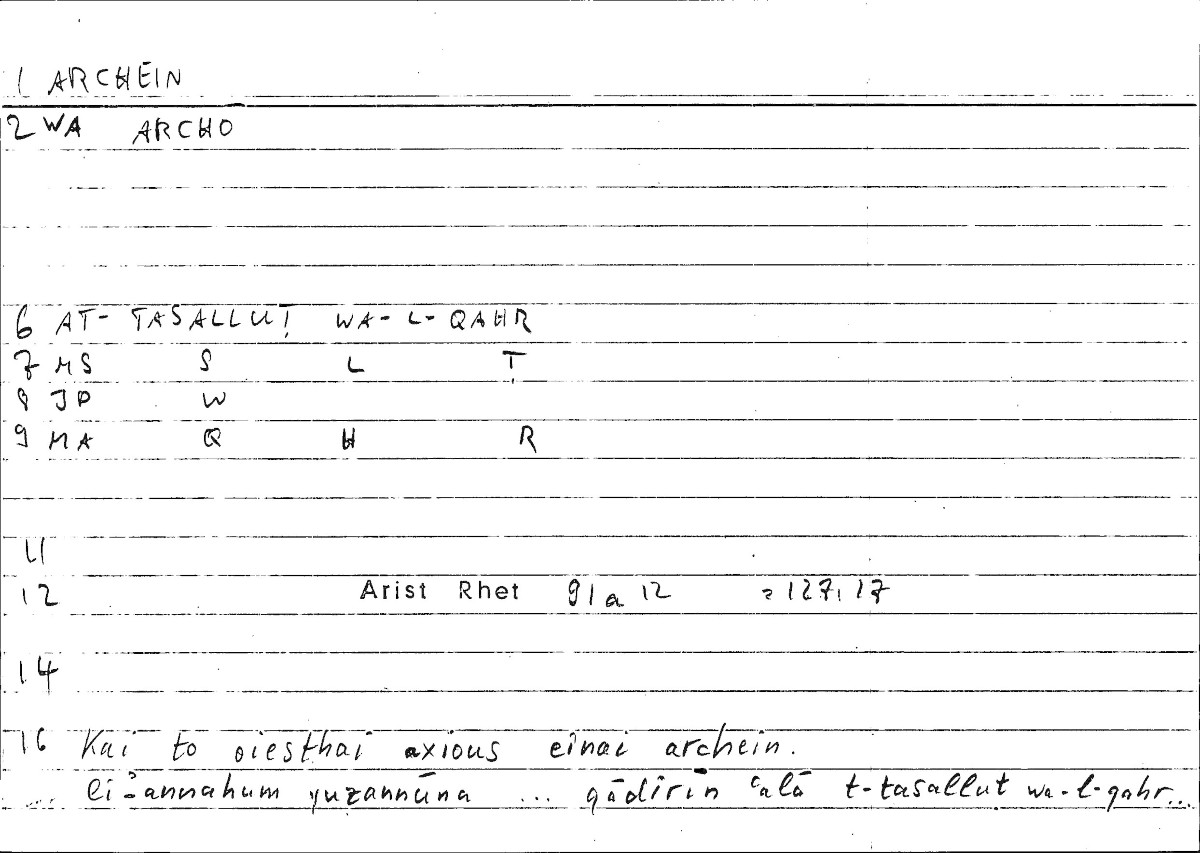 1 ARCHEIN
2 WA ARCHO
6 AT- TASALLUṬ WA- L- QAHR
7 MS S L Ṭ
8 JP W
9 MA Q H R
11
12 Arist Rhet 91a 12 = 127,17
14
16 Kai to oiesthai axious einai archein.
... li-ʾannahum yuzannūna ... qādirīn ʿalā t-tasallut wa-l-qahr...